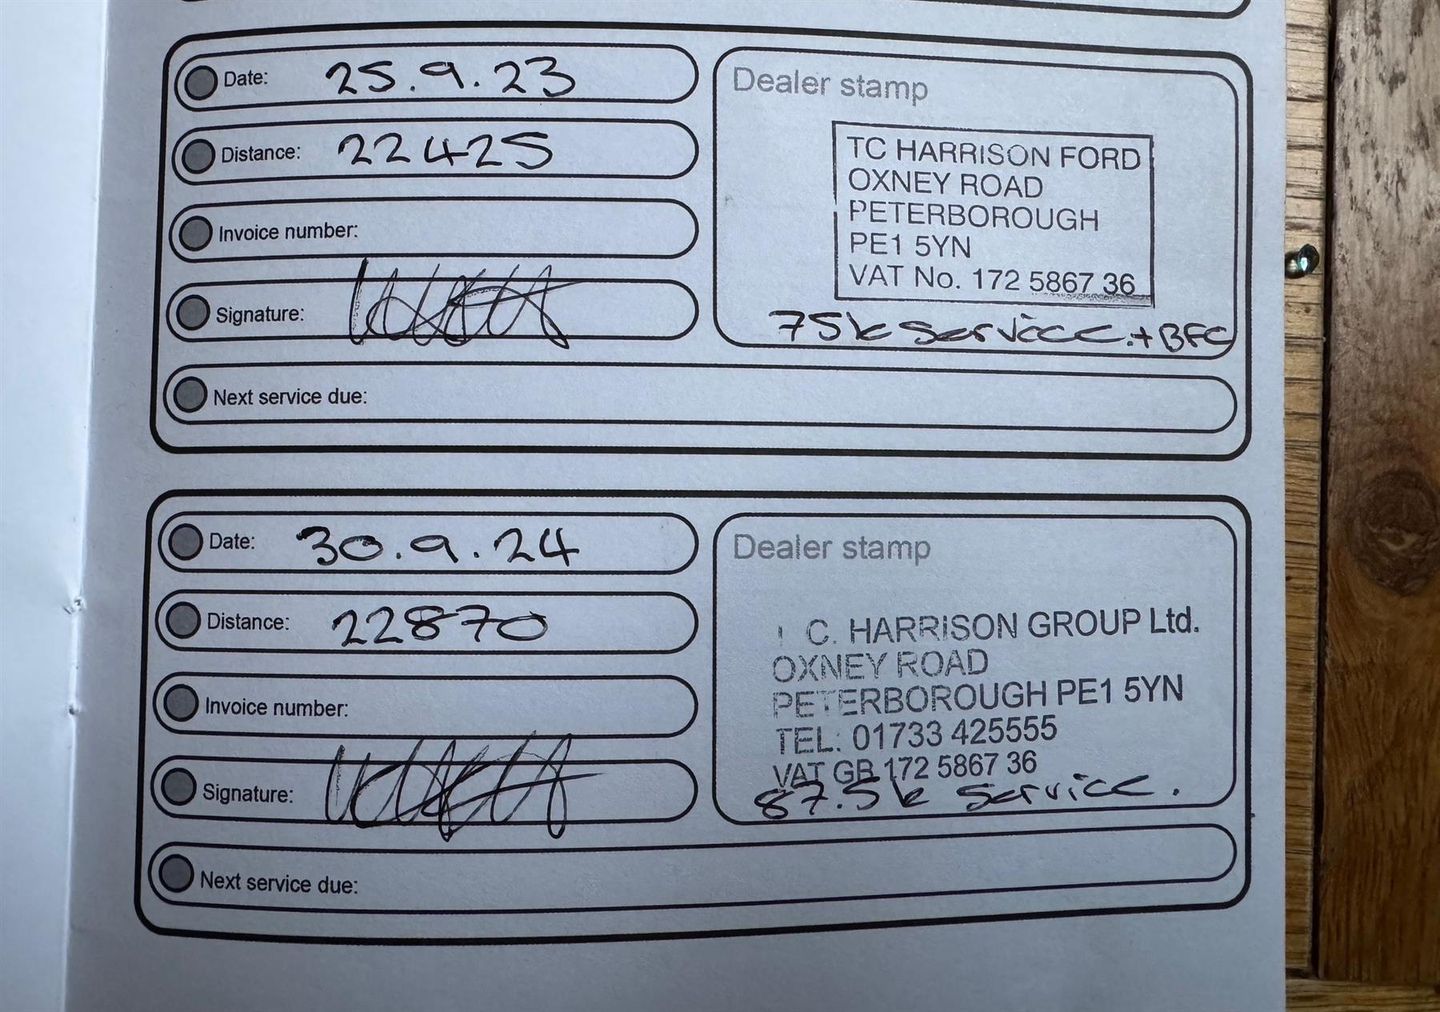 Date: 25.9.23
Distance: 22425
Invoice number:
Signature:
Next service due:
Dealer stamp
TC HARRISON FORD
OXNEY ROAD
PETERBOROUGH
PE1 5YN
VAT No. 172 5867 36
75k service.+BFC
Date: 30.9.24
Distance: 22870
Invoice number:
Signature:
Next service due:
Dealer stamp
C. HARRISON GROUP Ltd.
OXNEY ROAD
PETERBOROUGH PE1 5YN
TEL: 01733 425555
VAT GB 172 5867 36
87.5k service.